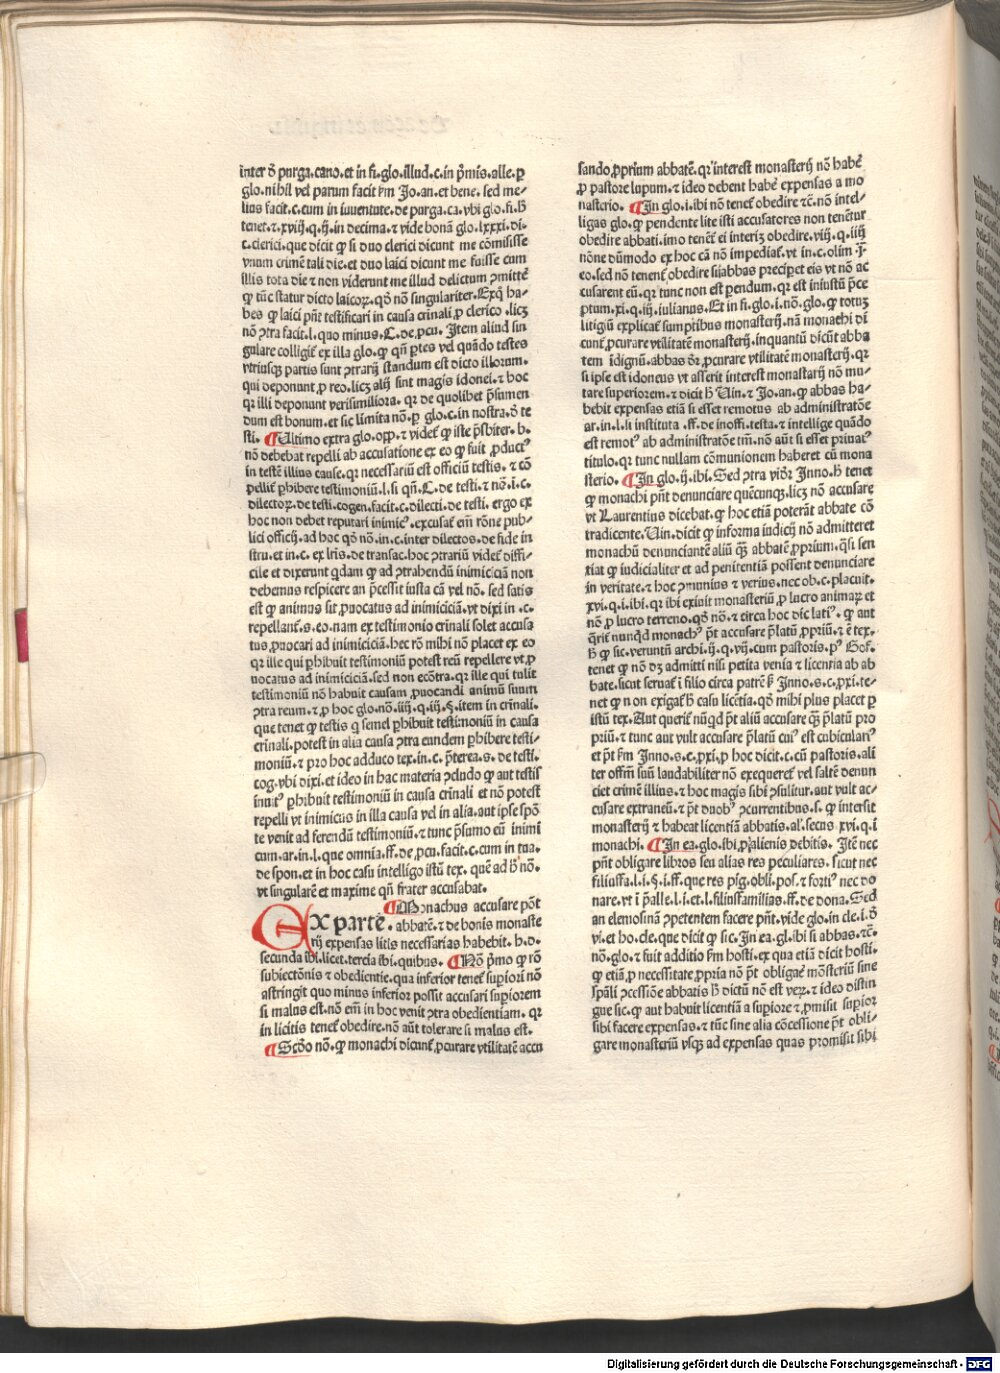 inter ō purga. cano. et in fi. glo. illud. c. in p̄mis. alle. ꝑ
glo. nihil vel parum facit ẜm Jo. an. et bene. sed me⸗
lius facit. c. cum in iuuentute. de purga. ca. vbi glo. fi. h̄
tenet. ⁊. xviij. q. ij. in decima. ⁊ vide bonā glo. lxxxi. di⸗
t. clerici. que dicit ꝙ si duo clerici dicunt me cōmisisse
vnum crimē tali die. et duo laici dicunt me fuisse cum
illis tota die ⁊ non viderunt me illud delictum ꝯmittē
ꝙ tūc statur dicto laicoꝝ. qō nō singulariter. Exꝗ ha⸗
bes ꝙ laici pn̄t testificari in causa crinali ꝓ clerico. licꝫ
nō ꝯtra facit. l. quo minus. C. de. ꝓcu. Item aliud sin
gulare colligiť ex illa glo. ꝙ qn̄ ꝑtes vel quādo testes
vtriusqꝫ partis sunt ꝯtrarij standum est dicto illorum.
qui deponunt. ꝓ reo. licꝫ alij sint magis idonei. ⁊ hoc
qꝛ illi deponunt verisimiliora. qꝛ de quolibet p̄sumen
dum est bonum. et sic limita nō. ꝑ glo. c. in nostra. ō te
sti. ¶ Ultimo extra glo. opp. ⁊ videť ꝙ iste p̄sbiter. h.
nō debebat repelli ab accusatione ex eo ꝙ fuit. ꝓductꝰ
in testē illius cause. qꝛ necessariū est officiū testis. ⁊ cō
pelliť ꝑhibere testimoniū. l. si qn̄. C. de testi. ⁊ nō. i. c.
dilectoꝝ. de testi. cogen. facit. c. dilecti. de testi. ergo ex
hoc non debet reputari inimicꝰ. excusať em̄ rōne pub⸗
lici officij. ad hoc qō nō. in. c. inter dilectos. de fide in
stru. et in. c. ex lr̄is. de transac. hoc ꝯtrariū videť diffi⸗
cile et dixerunt qdam ꝙ ad ꝯtrahendū inimiciciā non
debemus respicere an p̄cessit iusta cā vel nō. sed satis
est ꝙ animus sit. ꝓuocatus ad inimiciciā. vt dixi in. c.
repellanť. s. eo. nam ex testimonio crinali solet accusa
tus. ꝓuocari ad inimiciciā. hec rō mihi nō placet ex eo
qꝛ ille qui ꝑhibuit testimoniū potest reū repellere vt ꝓ
uocatus ad inimiciciā. sed non ecōtra. qꝛ ille qui tulit
testimoniū nō habuit causam. ꝓuocandi animū suum
ꝯtra reum. ⁊. ꝓ hoc glo. nō. iiij. q. iij. §. item in crinali.
que tenet ꝙ testis q̄ semel ꝑhibuit testimoniū in causa
crinali. potest in alia causa ꝯtra eundem ꝑhibere testi⸗
moniū. ⁊ pro hoc adduco tex. in. c. p̄terea. s. de testi.
cog. vbi dixi. et ideo in hac materia ꝯcludo ꝙ aut testis
inuitꝰ ꝑhibuit testimoniū in causa crinali et nō potest
repelli vt inimicus in illa causa vel in alia. aut ipse spō
te venit ad ferendū testimoniū. ⁊ tunc p̄sumo eū inimi
cum. ar. in. l. que omnia. ff. de. ꝓcu. facit. c. cum in tua.
de spon. et in hoc casu intelligo istū tex. quē ad h̄ nō.
vt singularē et maxime qn̄ frater accusabat.
¶ Monachus accusare pōt
Ex parte. abbatē. ⁊ de bonis monaste
rij expensas litis necessarias habebit. h. d.
secunda ibi. licet. tercia ibi. quibus. ¶ Nō p̄mo ꝙ rō
subiectōnis ⁊ obedientie. qua inferior teneť supiori nō
astringit quo minus inferior possit accusari supiorem
si malus est. nō em̄ in hoc venit ꝯtra obedientiam. qꝛ
in licitis teneť obedire. nō aūt tolerare si malus est.
¶ Scdo nō. ꝙ monachi dicunť. ꝓcurare vtilitatē accu
sando. ꝓprium abbatē. qꝛ interest monasterij nō habē
ꝓ pastore lupum. ⁊ ideo debent habē expensas a mo
nasterio. ¶ In glo. i. ibi nō teneť obedire ⁊c̄. nō intel⸗
ligas glo. ꝙ pendente lite isti accusatores non tenēťur
obedire abbati. imo tenēť ei interiꝫ obedire. viij. q. iiij
nōne dūmodo ex hoc cā nō impediať. vt in. c. olim. i.
eo. sed nō tenenť obedire si abbas precipet eis vt nō ac
cusarent eū. qꝛ tunc non est ꝑendum. qꝛ est iniustū p̄ce
ptum. xi. q. iij. iulianus. Et in fi. glo. i. nō. glo. ꝙ totuꝫ
litigiū explicať sumptibus monasterij. nā monachi di
cunť. ꝓcurare vtilitatē monasterij. inquantū dicūt abba
tem īdignū. abbas dr̄. ꝓcurare vtilitatē monasterij. qꝛ
si ipse est idoneus vt asserit interest monastarij nō mu⸗
tare superiorem. ⁊ dicit h̄ Uin. ⁊ Jo. an. ꝙ abbas ha⸗
bebit expensas etiā si esset remotus ab administratōe
ar. in. l. si instituta. ff. de inoffi. testa. ⁊ intellige quādo
est remotꝰ ab administratōe tm̄. nō aūt si esset priuatꝰ
titulo. qꝛ tunc nullam cōmunionem haberet cū mona
sterio. ¶ In glo. ij. ibi. Sed ꝯtra videť Inno. h̄ tenet
ꝙ monachi pn̄t denunciare quēcunqꝫ. licꝫ nō accusare
vt Laurentius dicebat. ꝙ hoc etiā poterāt abbate cō
tradicente. Uin. dicit ꝙ informa iudicij nō admitteret
monachū denunciantē aliū qꝫ abbatē. ꝓprium. qsi sen
tiat ꝙ iudicialiter et ad penitentiā possent denunciare
in veritate. ⁊ hoc ꝯmunius ⁊ verius. nec ob. c. placuit.
xvi. q. i. ibi. qꝛ ibi exiuit monasteriū. ꝓ lucro animaꝝ et
nō. ꝓ lucro terreno. qō nō. ⁊ circa hoc dic latiꝰ. ꝙ aut
q̄riť nunqd monachꝰ pt̄ accusare p̄latū. ꝓpriū. ⁊ ē tex.
h̄ ꝙ sic. veruntn̄ archi. ij. q. vij. cum pastoris. pꝰ Gof.
tenet ꝙ nō dꝫ admitti nisi petita venia ⁊ licentia ab ab
bate. sicut seruať i filio circa patrē ẜ Inno. s. c. ꝓxi. te⸗
net ꝙ non exigať h̄ casu licētia. qō mihi plus placet ꝑ
istū tex. Aut queriť nūqd pt̄ aliū accusare qꝫ p̄latū pro
priū. ⁊ tunc aut vult accusare p̄latū cuiꝰ est cubiculariꝰ
et pt̄ ẜm Inno. s. c. ꝓxi. ꝓ hoc dicit. c. cū pastoris. ali
ter offm̄ suū laudabiliter nō exequereť vel saltē denun
ciet crimē illius. ⁊ hoc magis sibi ꝯsulitur. aut vult ac⸗
cusare extraneū. ⁊ pt̄ duobꝰ ꝯcurrentibus. s. ꝙ intersit
monasterij ⁊ habeat licentiā abbatis. al'. secus xvi. q. i
monachi. ¶ In ea. glo. ibi. ꝑ alienis debitis. Itē nec
pn̄t obligare libros seu alias res peculiares. sicut nec
filiusfa. l. i. §. i. ff. que res pig. obli. pos. ⁊ fortiꝰ nec do
nare. vt i p̄alle. l. i. et. l. filiusfamilias. ff. de dona. Sed
an elemosinā ꝯpetentem facere pn̄t. vide glo. in cle. i. ō
vi. et ho. cle. que dicit ꝙ sic. In ea. gl. ibi si abbas. ⁊c̄.
nō. glo. ⁊ fuit additio ẜm hosti. ex qua etiā dicit hosti.
ꝙ etiā. ꝓ necessitate. ꝓpria nō pt̄ obligaē mōsteriū sine
sp̄ali ꝯcessiōe abbatis h̄ dictū nō est veꝝ. ⁊ ideo distin
gue sic. ꝙ aut habuit licentiā a supiore ⁊. ꝓmisit supior
sibi facere expensas. ⁊ tūc sine alia cōcessione pt̄ obli⸗
gare monasteriū vsqꝫ ad expensas quas promisit sibi
Digitalisierung gefördert durch die Deutsche Forschungsgemeinschaft - DFG